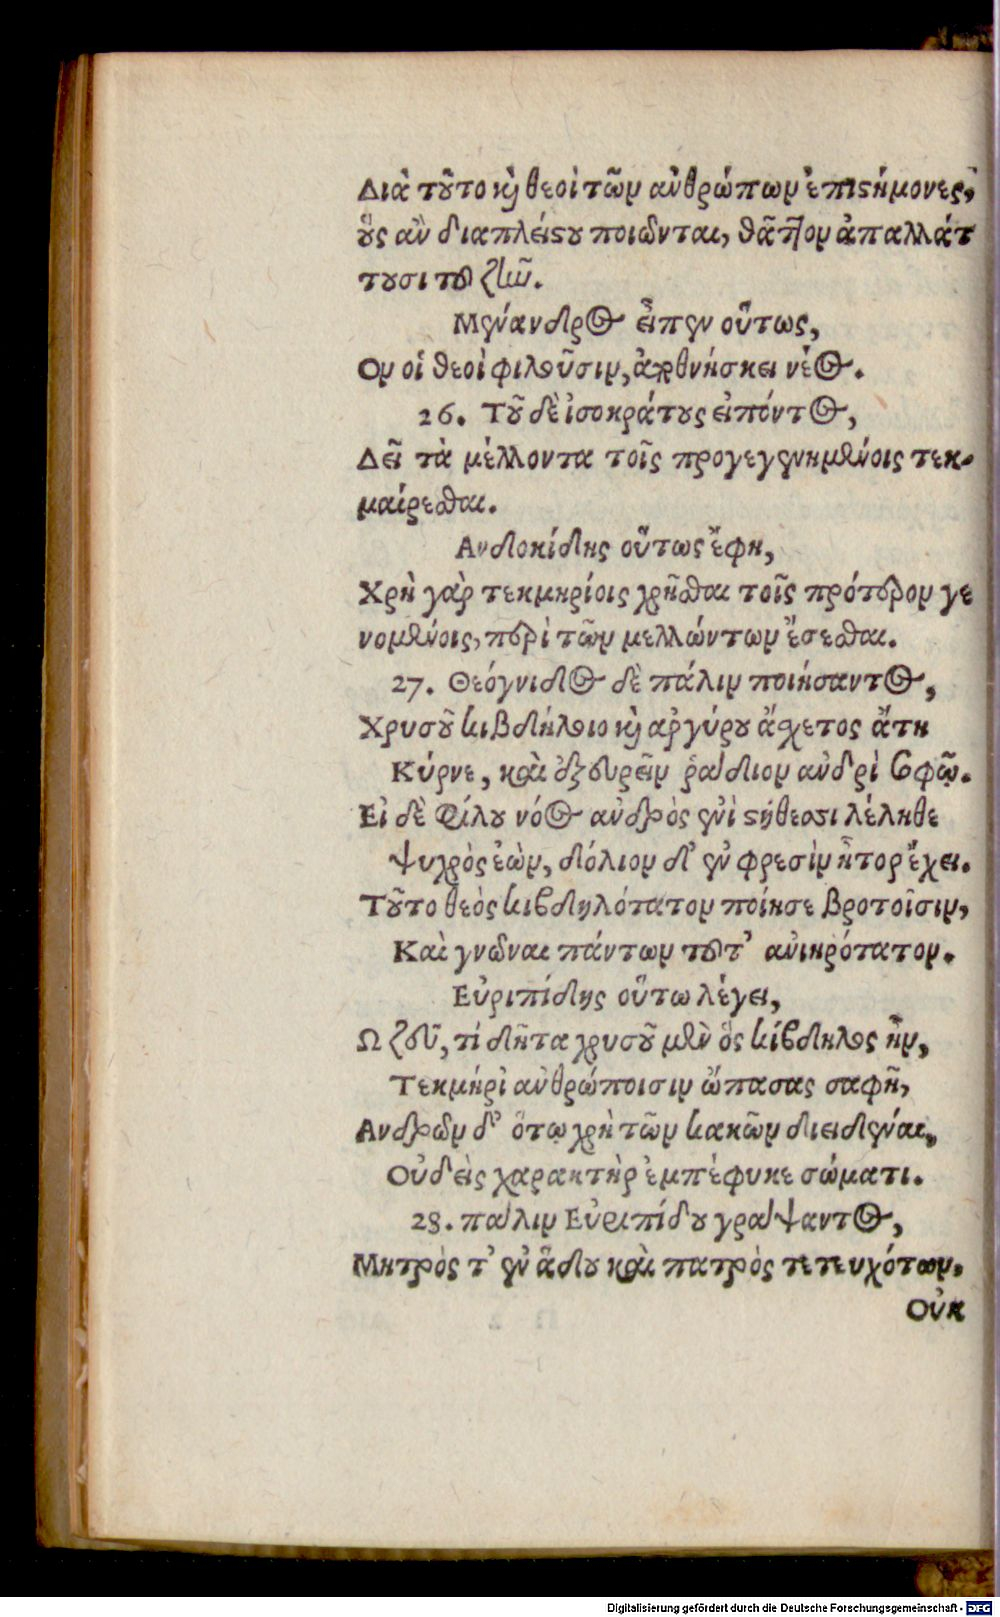 Διὰ τοῦτο καὶ θεοὶ τῶν ἀνθρώπων ἐπιστήμονες,
οὓς ἂν διαπλείστου ποιῶνται, θᾶττον ἀπαλλάτ
τουσι τοῦ ζῆν.
Μένανδρος εἶπεν οὕτως,
Ον οἱ θεοὶ φιλοῦσιν, ἀποθνήσκει νέος.
26. Τοῦ δὲ ἰσοκράτους εἰπόντος,
Δεῖ τὰ μέλλοντα τοῖς προγεγενημένοις τεκ-
μαίρεσθαι.
Ανδοκίδης οὕτως ἔφη,
Χρὴ γὰρ τεκμηρίοις χρῆσθαι τοῖς πρότερον γε
νομένοις, περὶ τῶν μελλώντων ἔσεσθαι.
27. Θεόγνιδος δὲ πάλιν ποιήσαντος,
Χρυσοῦ κιβδήλοιο καὶ ἀργύρου ἄσχετος ἄτη
Κύρνε, καὶ ἐξευρεῖν ῥάδιον ἀνδρὶ σοφῷ.
Εἰ δὲ φίλου νόος ἀνδρὸς ἐνὶ στήθεσσι λέληθε
ψυχρὸς ἐὼν, δόλιον δ' ἐν φρεσὶν ἦτορ ἔχει.
Τοῦτο θεὸς κιβδηλότατον ποίησε βροτοῖσιν,
Καὶ γνῶναι πάντων τοῦτ' ἀνιηρότατον.
Εὐριπίδης οὕτω λέγει,
Ω ζεῦ, τί δῆτα χρυσοῦ μὲν ὃς κίβδηλος ἦν,
Τεκμήρι ἀνθρώποισιν ὤπασας σαφῆ,
Ανδρῶν δ' ὅτῳ χρὴ τῶν κακῶν διειδέναι,
Οὐδεὶς χαρακτὴρ ἐμπέφυκε σώματι.
28. πάλιν Εὐριπίδου γράψαντος,
Μητρὸς τ' ἐν ἅδου καὶ πατρὸς τετευχότων,
Οὐκ
Digitalisierung gefördert durch die Deutsche Forschungsgemeinschaft - DFG